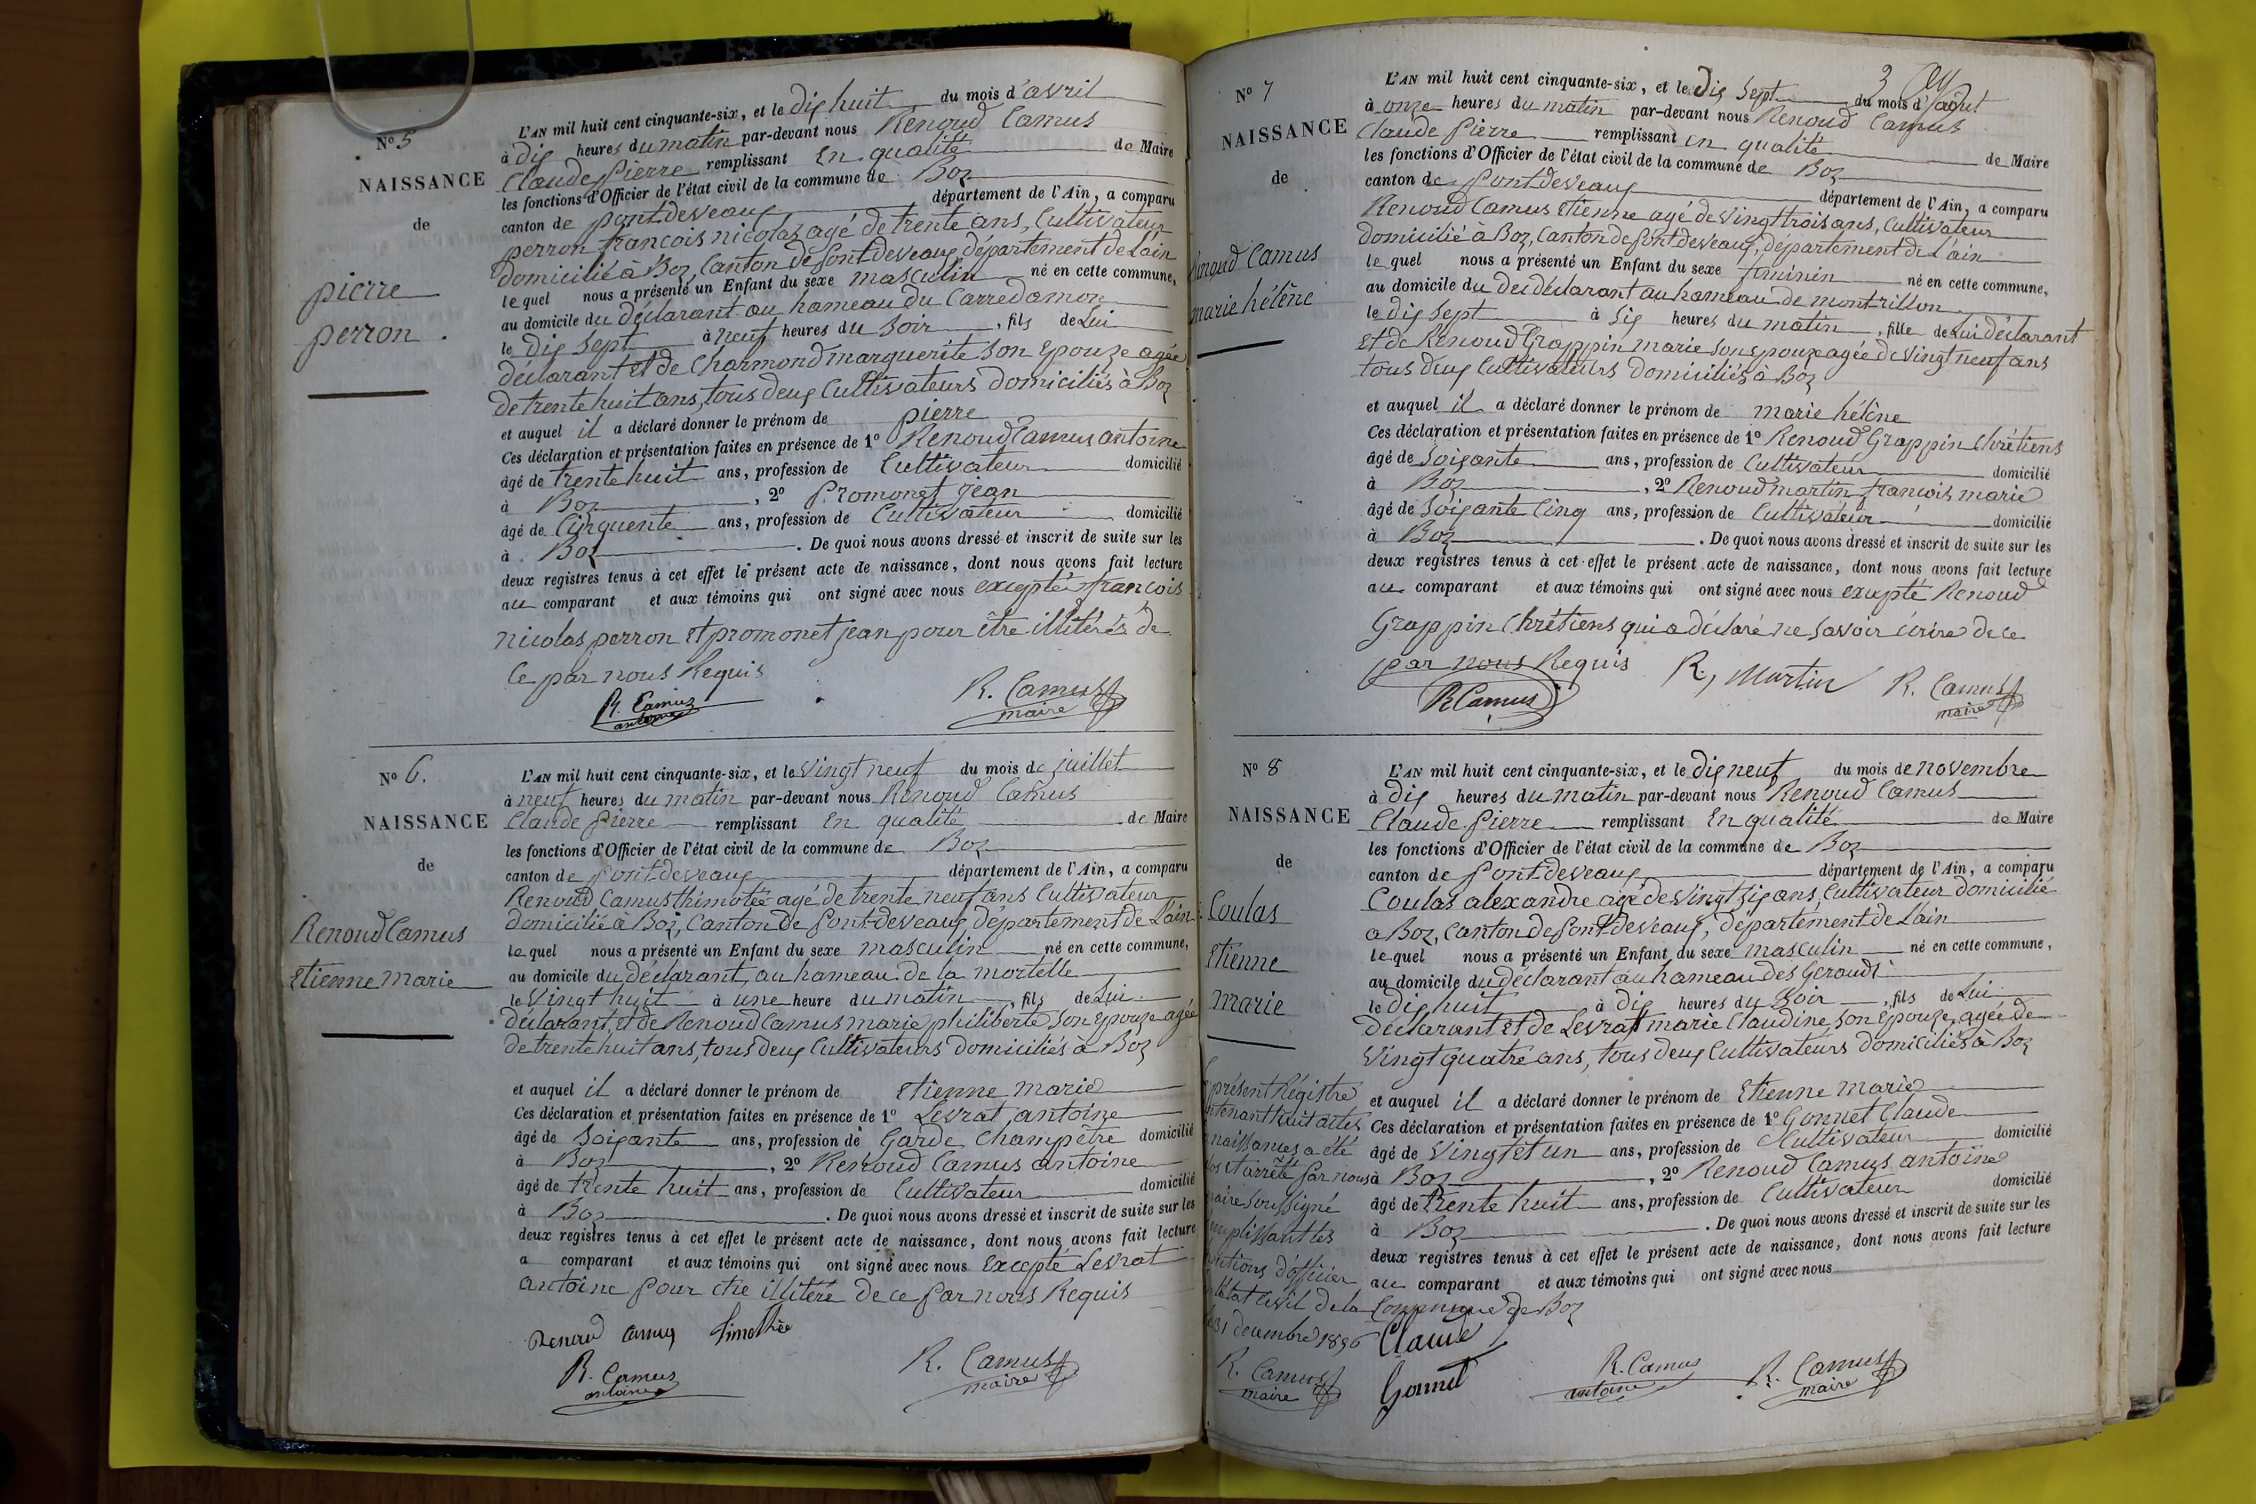 N° 5
NAISSANCE
de
pierre
perron
L'AN mil huit cent cinquante-six, et le dix huit du mois d'avril
à dix heures du matin par-devant nous Renoud Camus
Claude Pierre remplissant en qualité de Maire
les fonctions d'Officier de l'état civil de la commune de Boz
canton de pontdevaux département de l'Ain, a comparu
perron francois nicolas agé de trente ans, Cultivateur
domicilié à Boz, Canton de pontdevaux département de Lain
lequel nous a présenté un Enfant du sexe masculin né en cette commune,
au domicile du déclarant au hameau du Carredamon
le dix sept à neuf heures du soir, fils de Lui
déclarant et de Charmond marguerite son Epouze agée
de trente huit ans, tous deux Cultivateurs domiciliés à Boz
et auquel il a déclaré donner le prénom de pierre
Ces déclaration et présentation faites en présence de 1° Renoud Camus antoine
âgé de trente huit ans, profession de Cultivateur domicilié
à Boz, 2° Promonet jean
âgé de Cinquente ans, profession de Cultivateur domicilié
à Boz. De quoi nous avons dressé et inscrit de suite sur les
deux registres tenus à cet effet le présent acte de naissance, dont nous avons fait lecture
au comparant et aux témoins qui ont signé avec nous excepté francois
nicolas perron et promonet jean pour être illitérés de
Ce par nous Requis
R. Camus antoine
R. Camus maire
N° 6.
NAISSANCE
de
Renoud Camus
Etienne marie
L'AN mil huit cent cinquante-six, et le vingt neuf du mois de juillet
à neuf heures du matin par-devant nous Renoud Camus
Claude Pierre remplissant en qualité de Maire
les fonctions d'Officier de l'état civil de la commune de Boz
canton de Pontdevaux département de l'Ain, a comparu
Renoud Camus thimotée agé de trente neuf ans Cultivateur
domicilié à Boz, Canton de Pontdevaux, département de L'ain
lequel nous a présenté un Enfant du sexe masculin né en cette commune,
au domicile du déclarant, au hameau de la mortelle
le vingt huit à une heure du matin, fils de Lui
déclarant, et de Renoud Camus marie philiberte son Epouze agée
de trente huit ans, tous deux Cultivateurs domiciliés à Boz
et auquel il a déclaré donner le prénom de Etienne marie
Ces déclaration et présentation faites en présence de 1° Levrat antoine
âgé de Soixante ans, profession de Garde Champêtre domicilié
à Boz, 2° Renoud Camus antoine
âgé de trente huit ans, profession de Cultivateur domicilié
à Boz. De quoi nous avons dressé et inscrit de suite sur les
deux registres tenus à cet effet le présent acte de naissance, dont nous avons fait lecture
a comparant et aux témoins qui ont signé avec nous excepté Levrat
antoine pour etre illitéré de ce par nous Requis
Renoud Camus Timothée
R. Camus antoine
R. Camus maire
3
N° 7
NAISSANCE
de
Renoud Camus
marie hélène
L'AN mil huit cent cinquante-six, et le dix sept du mois d'août
à onze heures du matin par-devant nous Renoud Camus
Claude Pierre remplissant en qualité de Maire
les fonctions d'Officier de l'état civil de la commune de Boz
canton de Pontdevaux département de l'Ain, a comparu
Renoud Camus Etienne agé de vingt trois ans, Cultivateur
domicilié a Boz, Canton de Pontdevaux, département de L'ain
lequel nous a présenté un Enfant du sexe feminin né en cette commune,
au domicile du du déclarant au hameau de montrillon
le dix sept à six heures du matin, fille de Lui déclarant
et de Renoud Grappin marie son epouze agée de vingt neuf ans
tous deux Cultivateurs domiciliés à Boz
et auquel il a déclaré donner le prénom de marie hélène
Ces déclaration et présentation faites en présence de 1° Renoud Grappin Chrétiens
âgé de Soixante ans, profession de Cultivateur domicilié
à Boz, 2° Renoud martin francois marie
âgé de Soixante Cinq ans, profession de Cultivateur domicilié
à Boz. De quoi nous avons dressé et inscrit de suite sur les
deux registres tenus à cet effet le présent acte de naissance, dont nous avons fait lecture
au comparant et aux témoins qui ont signé avec nous excepté Renoud
Grappin Chrétiens qui a déclaré ne savoir écrire de ce
par nous Requis R, Martin R. Camus maire
R Camus
N° 8
NAISSANCE
de
Coulas
Etienne
marie
L'AN mil huit cent cinquante-six, et le dix neuf du mois de novembre
à dix heures du matin par-devant nous Renoud Camus
Claude Pierre remplissant En qualité de Maire
les fonctions d'Officier de l'état civil de la commune de Boz
canton de Pontdevaux département de l'Ain, a comparu
Coulas alexandre agé de vingt six ans, Cultivateur domicilié
a Boz, Canton de Pontdevaux, département de Lain
lequel nous a présenté un Enfant du sexe masculin né en cette commune,
au domicile du déclarant au hameau des Gerouds
le dix huit à dix heures du Soir, fils de Lui
déclarant et de Levrat marie Claudine, son Epouze, agée de
vingt quatre ans, tous deux Cultivateurs domiciliés à Boz
et auquel il a déclaré donner le prénom de Etienne marie
Ces déclaration et présentation faites en présence de 1° Gonnet Claude
âgé de vingt et un ans, profession de Cultivateur domicilié
à Boz, 2° Renoud Camus antoine
âgé de trente huit ans, profession de Cultivateur domicilié
à Boz. De quoi nous avons dressé et inscrit de suite sur les
deux registres tenus à cet effet le présent acte de naissance, dont nous avons fait lecture
au comparant et aux témoins qui ont signé avec nous
présent Régistre
contenant huit actes
naissances a été
clos et arrêté par nous
maire soussigné
remplissant les
fonctions d'officier
de l'état civil de la Commune de Boz
le 31 décembre 1856
R. Camus maire
Claude
Gonnet
R. Camus antoine
R. Camus maire